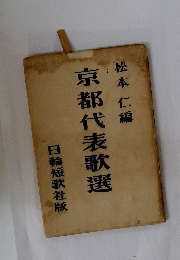 松本仁編
京都代表歌選
日輪短歌社版